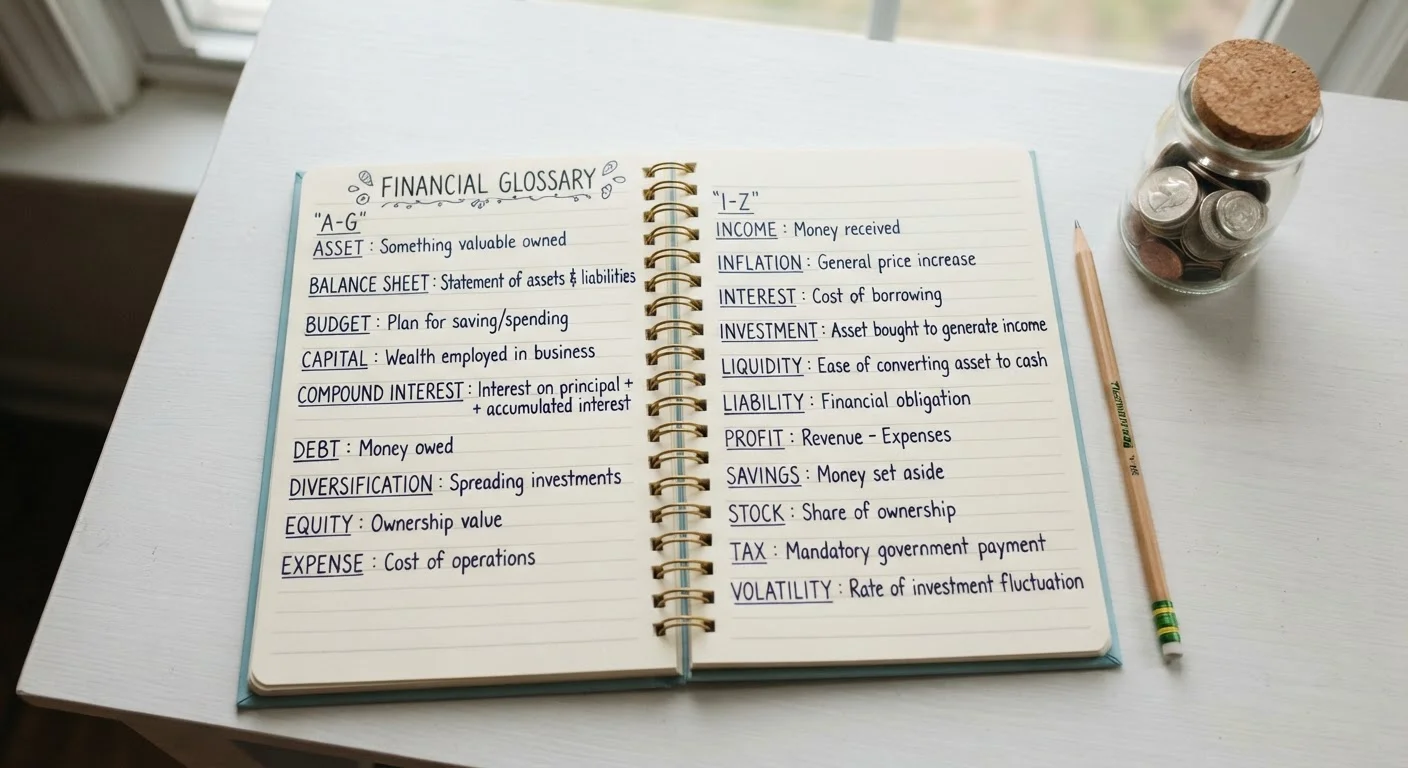 FINANCIAL GLOSSARY
"A-G"
ASSET : Something valuable owned
BALANCE SHEET : Statement of assets & liabilities
BUDGET : Plan for saving/spending
CAPITAL : Wealth employed in business
COMPOUND INTEREST : Interest on principal +
+ accumulated interest
DEBT : Money owed
DIVERSIFICATION : Spreading investments
EQUITY : Ownership value
EXPENSE : Cost of operations
"I-Z"
INCOME : Money received
INFLATION : General price increase
INTEREST : Cost of borrowing
INVESTMENT : Asset bought to generate income
LIQUIDITY : Ease of converting asset to cash
LIABILITY : Financial obligation
PROFIT : Revenue - Expenses
SAVINGS : Money set aside
STOCK : Share of ownership
TAX : Mandatory government payment
VOLATILITY : Rate of investment fluctuation